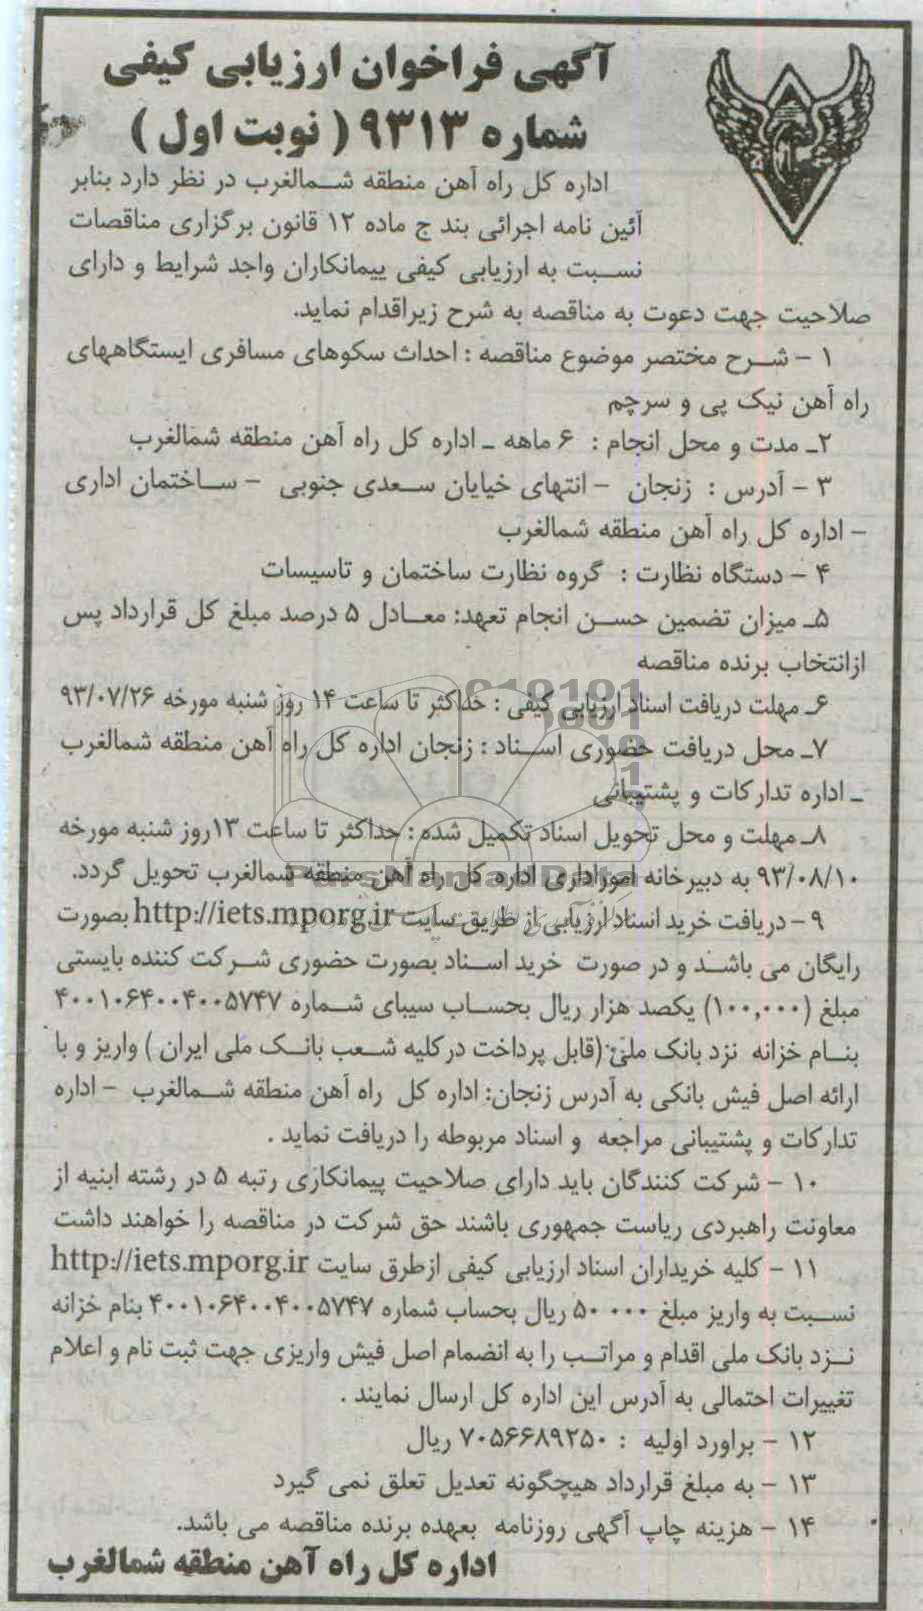 آگهی فراخوان ارزیابی کیفی
شماره ۹۳۱۳ ( نوبت اول )
اداره کل راه آهن منطقه شمالغرب در نظر دارد بنابر
آئین نامه اجرائی بند ج ماده ۱۲ قانون برگزاری مناقصات
نسبت به ارزیابی کیفی پیمانکاران واجد شرایط و دارای
صلاحیت جهت دعوت به مناقصه به شرح زیراقدام نماید.
۱ - شرح مختصر موضوع مناقصه : احداث سکوهای مسافری ایستگاههای
راه آهن نیک پی و سرچم
۲ـ مدت و محل انجام : ۶ ماهه ـ اداره کل راه آهن منطقه شمالغرب
۳ - آدرس : زنجان - انتهای خیابان سعدی جنوبی - ساختمان اداری
- اداره کل راه آهن منطقه شمالغرب
۴ - دستگاه نظارت : گروه نظارت ساختمان و تاسیسات
۵ـ میزان تضمین حسن انجام تعهد: معادل ۵ درصد مبلغ کل قرارداد پس
ازانتخاب برنده مناقصه
۶ـ مهلت دریافت اسناد ارزیابی کیفی : حداکثر تا ساعت ۱۴ روز شنبه مورخه ۹۳/۰۷/۲۶
۷ـ محل دریافت حضوری اسناد : زنجان اداره کل راه آهن منطقه شمالغرب
ـ اداره تدارکات و پشتیبانی
۸ـ مهلت و محل تحویل اسناد تکمیل شده : حداکثر تا ساعت ۱۳روز شنبه مورخه
۹۳/۰۸/۱۰ به دبیرخانه اموراداری اداره کل راه آهن منطقه شمالغرب تحویل گردد.
۹ - دریافت خرید اسناد ارزیابی از طریق سایت http://iets.mporg.ir بصورت
رایگان می باشد و در صورت خرید اسناد بصورت حضوری شرکت کننده بایستی
مبلغ (۱۰۰,۰۰۰) یکصد هزار ریال بحساب سیبای شماره ۴۰۰۱۰۶۴۰۰۴۰۰۵۷۴۷
بنام خزانه نزد بانک ملی (قابل پرداخت درکلیه شعب بانک ملی ایران ) واریز و با
ارائه اصل فیش بانکی به آدرس زنجان: اداره کل راه آهن منطقه شمالغرب - اداره
تدارکات و پشتیبانی مراجعه و اسناد مربوطه را دریافت نماید .
۱۰ - شرکت کنندگان باید دارای صلاحیت پیمانکاری رتبه ۵ در رشته ابنیه از
معاونت راهبردی ریاست جمهوری باشند حق شرکت در مناقصه را خواهند داشت
۱۱ - کلیه خریداران اسناد ارزیابی کیفی ازطرق سایت http://iets.mporg.ir
نسبت به واریز مبلغ ۵۰ ۰۰۰ ریال بحساب شماره ۴۰۰۱۰۶۴۰۰۴۰۰۵۷۴۷ بنام خزانه
نزد بانک ملی اقدام و مراتب را به انضمام اصل فیش واریزی جهت ثبت نام و اعلام
تغییرات احتمالی به آدرس این اداره کل ارسال نمایند .
۱۲ - براورد اولیه : ۷۰۵۶۶۸۹۲۵۰ ریال
۱۳ - به مبلغ قرارداد هیچگونه تعدیل تعلق نمی گیرد
۱۴ - هزینه چاپ آگهی روزنامه بعهده برنده مناقصه می باشد.
اداره کل راه آهن منطقه شمالغرب
ParsNamadData